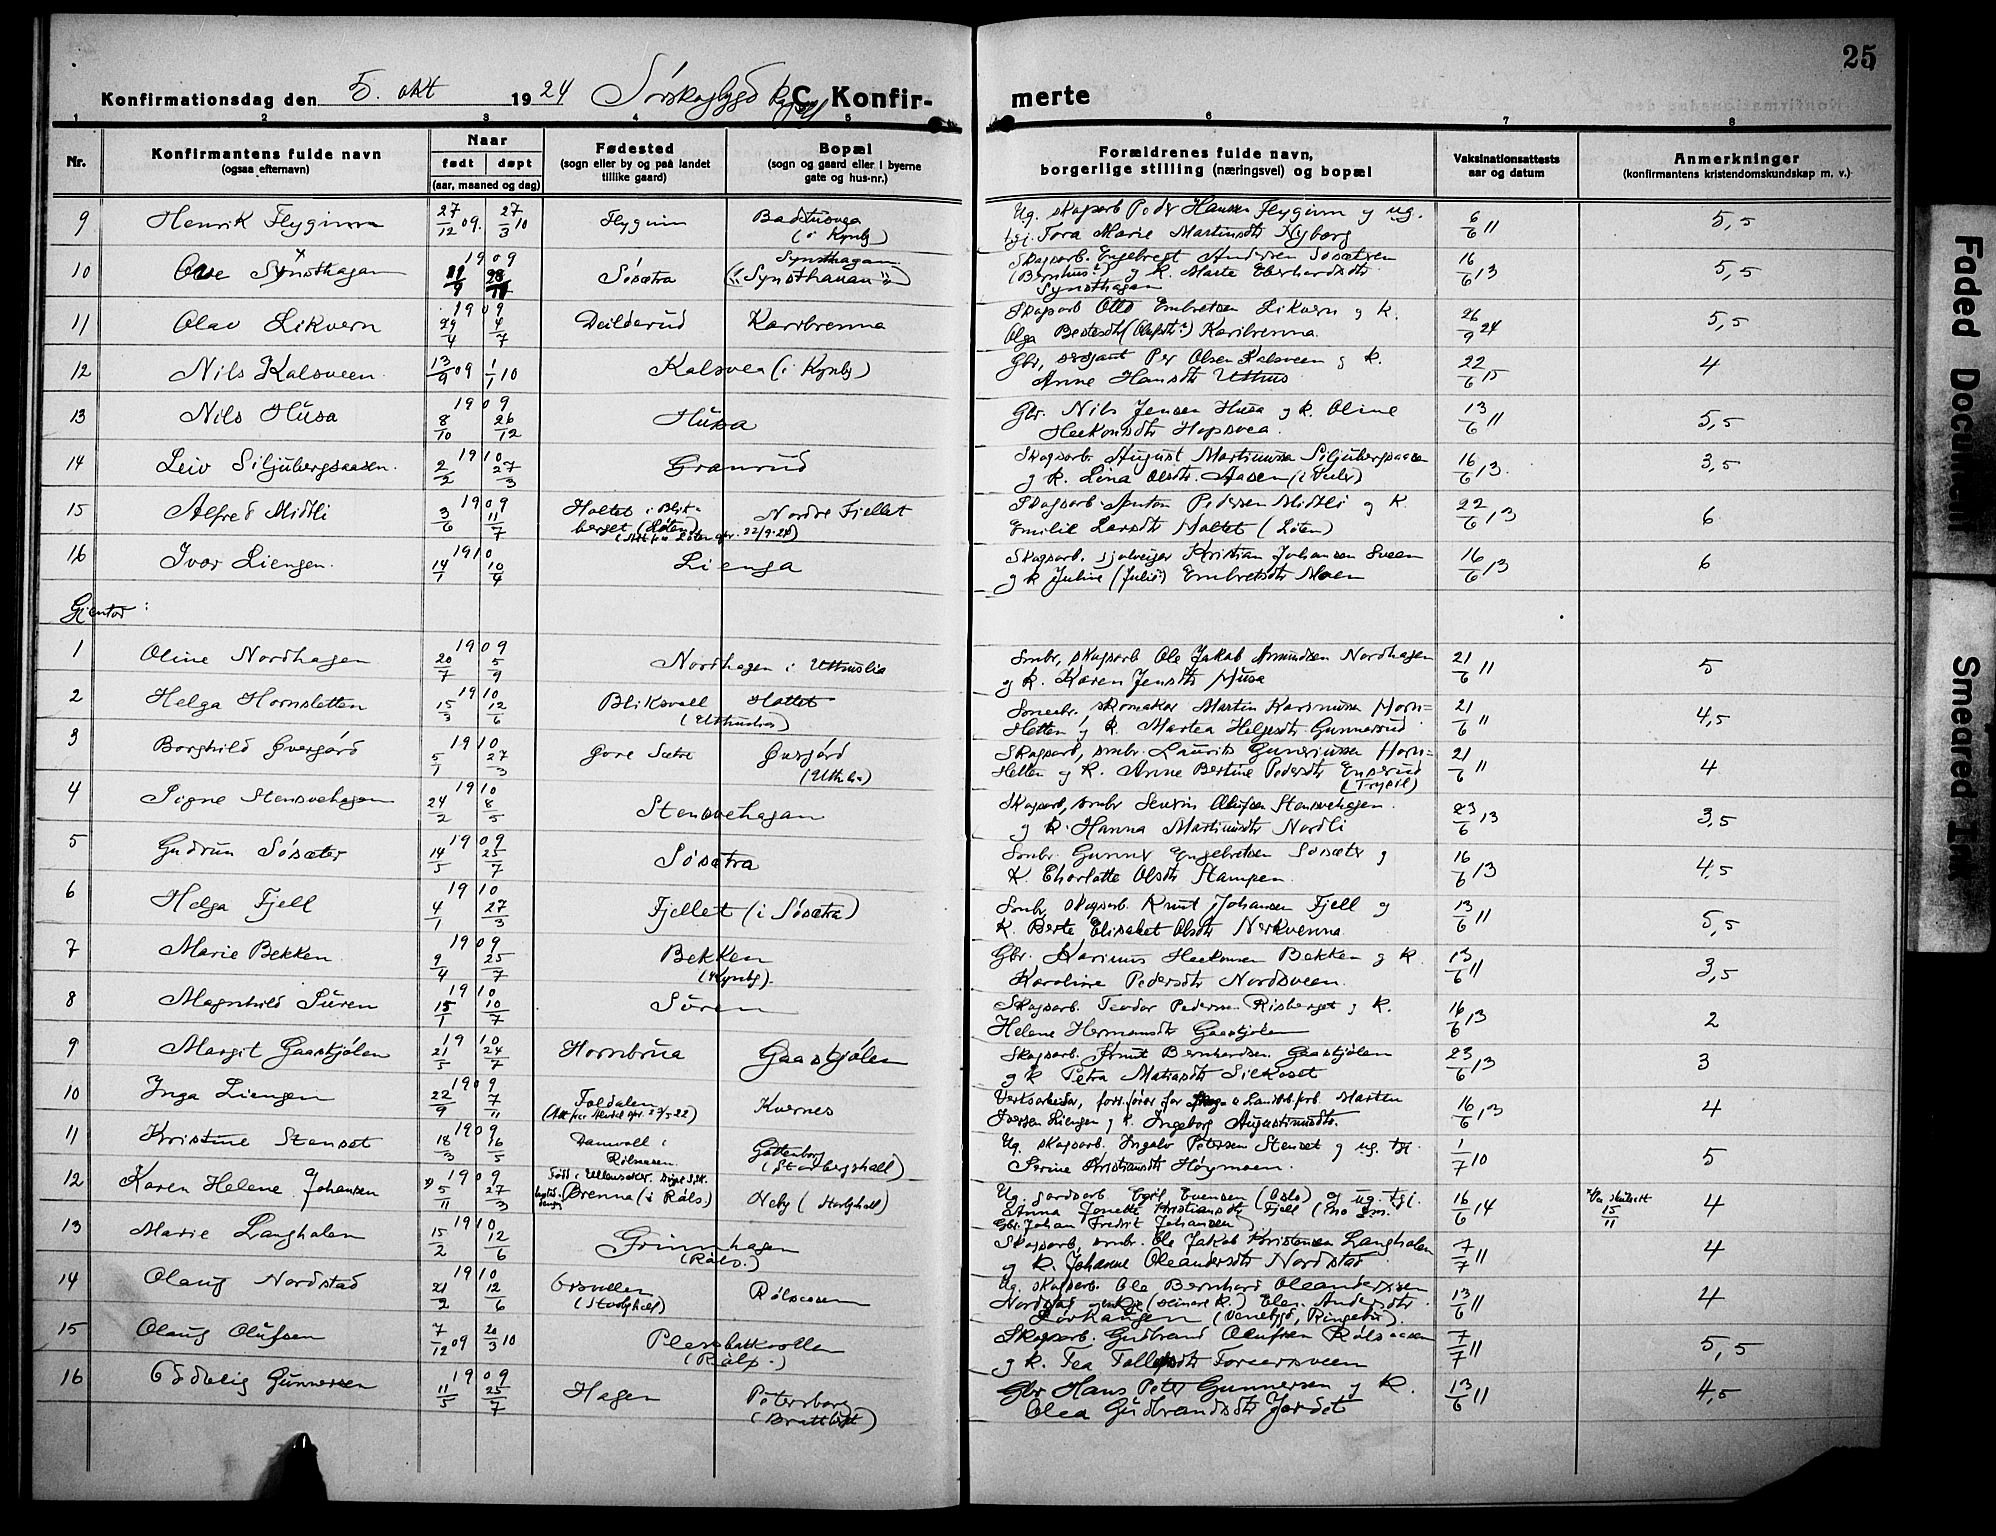 25
Konfirmationsdag den 5. okt 1924 Sørskogbygd C. Konfirmerte
1 2 3 4 5 6 7 8
Nr. Konfirmantens fulde navn (ogsaa efternavn) Naar født døpt (aar, maaned og dag) Fødested (sogn eller by og paa landet tillike gaard) Bopæl (sogn og gaard eller i byerne gate og hus-nr.) Forældrenes fulde navn, borgerlige stilling (næringsvei) og bopæl Vaksinationsattests aar og datum Anmerkninger (konfirmantens kristendomskundskap m. v.)
9 Henrik Flyginn 27/12 09. 27/3 10 Flyginn Badstusvea (i Kynb) Ug. skogsarb Peder Hansen Flyginn og ug. tj. Tora Marie Martinsdtr Nyborg 6/6 11 5,5
10 Ove Synsthagen 1909 Søsætra Synsthagen Skogsarb. Engebregt Andersen Søsætren og k. Marte Eberhardsdtr Synsthagen 16/6 13 5,5
11 Olav Likvern 1909 29/4 4/7 Deilderud Karibrenna Skogsarb Otto Embretsen Likvern og k. Olga Karibrenna 26/9 24 5,5
12 Nils Kalsveen 13/9 09 1/1 10 Kalsvea (i Kynb) Gbr, sersjant Per Olsen Kalsveen og k. Anne Hansdtr Uthus 22/6 15 4
13 Nils Husa 1909 8/10 26/12 Husa Gbr. Nils Jensen Husa og k. Oline Haakonsdtr Hopsvea. 13/6 11 5,5
14 Leiv Siljubergsaasen. 1910 2/2 27/3 Granrud Skogsarb. August Martinussen Siljubergsaasen og k. Lina Olsdtr. Aasen 16/6 13. 3,5
15 Alfred Midtli 1909 3/6 11/7 Holtet i Blikberget (Løten) Nordre Fjellet Skogsarb. Anton Pedersen Midtli og k. Emilie Larsdtr Holtet (Løten) 22/6 13 6
16 Ivar Liengen. 1910 14/1 10/4 Lienga Skogsarb. sjølveiger Kristian Johansen Sveen og k Juline (Julie) Embretsdtr Moen 16/6 13 6
Gjentor:
1 Oline Nordhagen 1909 20/7 5/9 Nordhagen i Uthuslia Smbr, skogsarb Ole Jakob Amundsen Nordhagen og k. Karen Jensdtr Husa 21/6 11 5
2 Helga Hornsletten 1910 15/3 12/6 Bliksvoll (Uthuslia) Holtet skomaker Martin Karinussen Hornsletten og k. Martea Helgesdtr Gunnerud 21/6 11 4,5
3 Borghild Øvergård 1910 5/1 27/3 Øvre Sætre Øvergård (Uthuslia) Skogsarb, smbr. Laurits Gunerinssen Hornsletten og k. Anne Bertine Pedersdtr Enserud (Trysil) 21/6 11 4
4 Signe Stensvehagen 1910 24/2 8/5 Stensvehagen Skogsarb, smbr Severin Olufsen Stensvehagen. og k. Hanna Martinusdtr Nordli 23/6 13 3,5
5 Gudrun Søsæter 1909 14/5 25/7 Søsætra Smbr. Gunner Engebretsen Søsæter og k. Charlotte Olsdtr Stampen. 16/6 13 4,5
6 Helga Fjell 1910 4/1 27/3 Fjellet (i Søsætra) Smbr, skogsarb. Knut Johansen Fjell og k. Berte Elisabet Olsdtr Nerkvenna 13/6 11 5,5
7 Marie Bekken. 1909 9/4 25/7 Bekken (Kynb). Gbr. Karinus Haakonsen Bekken og k. Karoline Pedersdtr Nordsveen. 13/6 11 3,5
8 Magnhild Suren 1910 15/1 10/7 Suren Skogsarb. Teodor Pedersen Risberget og k. Helene Hermansdtr Gaastjølen 16/6 13 2
9 Margit Gaastjølen 1910 21/5 24/7 Hornbrua Gaastjølen Skogsarb. Knut Bernhardsen Gaastjølen og k Petra Matiasdtr Silkoset 23/6 13 3
10 Inga Liengen 1909 22/9 7/11 Foldalen Kvernes Martin Iversen Liengen og k. Ingeborg Augustinusdtr. 16/6 13 4
11 Kristine Stenset 1909 18/3 16/5 Damvoll i Røisaasen. Gøttenborg (Stavberghall) Ug. skogsarb. Ingolv Petersen Stenset og ug. tj. Serine Kristiansdtr Høymoen. 1/7 10 5
12 Karen Helene Johansen 1909 5/11 27/3 Brenna (i Røls) Heby Ug. jordarb. Egil Evensen (Oslo) og ug. tj. Anna Jonette Kristiansdtr Fjell Gbr. Johan Fredrik Johansen 16/6 14 15/11 4
13 Marie Langholen 1910 15/2 12/6 Grinnhagen (Røls.) Skogsarb, smbr. Ole Jakob Kristensen Langholen og k. Johanne Oleandersdtr Nordstad 7/7 11 4
14 Olaug Nordstad 1910 21/2 12/6 Orsvollen Rølsaasen Ug. skogsarb. Ole Bernhard Oleandersen Nordstad og enkje (seinare k.) Elen Andersdtr Lørhaugen (Venebygd, Ringebu). 13/6 11 4
15 Olaug Olufsen 7/12 09 20/3 10 Plassbakkvollen (Røls.) Skogsarb. Gudbrand Olufsen Rølsaasen og k. Tea Tollefsdtr Torcersveen 7/7 11 5,5
16 Oddveig Gunnersen 1909 11/5 25/7 Hagen Petersborg Gbr Hans Peter Gunnersen og k. Olea Gudbrandsdtr Jordet 13/6 11 4,5
Faded Document
Smeared Ink